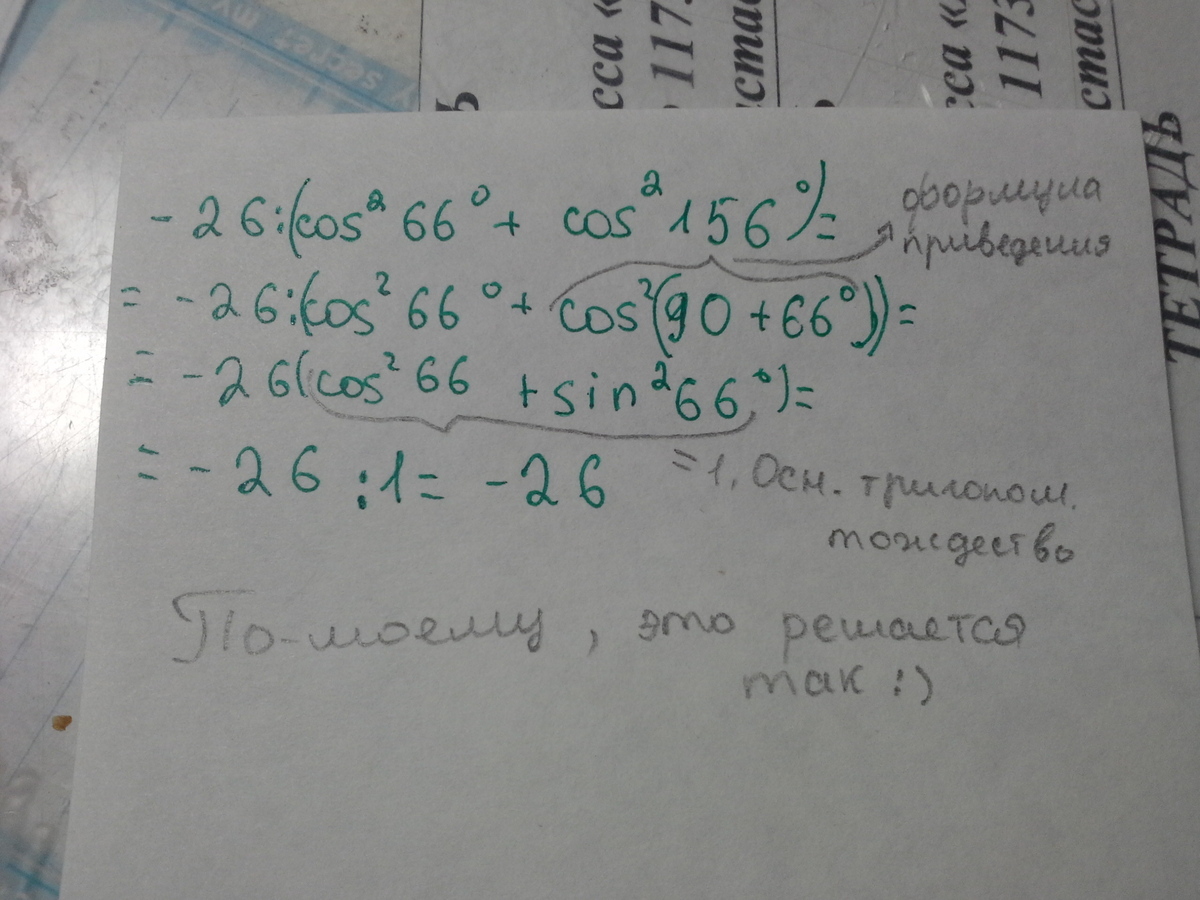 secret my
сса «
1173
ста
сса «
1173
ста
ТЕТРАДЬ
-26:(cos² 66° + cos² 156°)=
формула
приведения
= -26:(cos² 66° + cos²(90 +66°))=
= -26(cos² 66 + sin² 66°)=
= -26 :1= -26
=1, Осн. тригоном.
тождество
По-моему, это решается
так :)